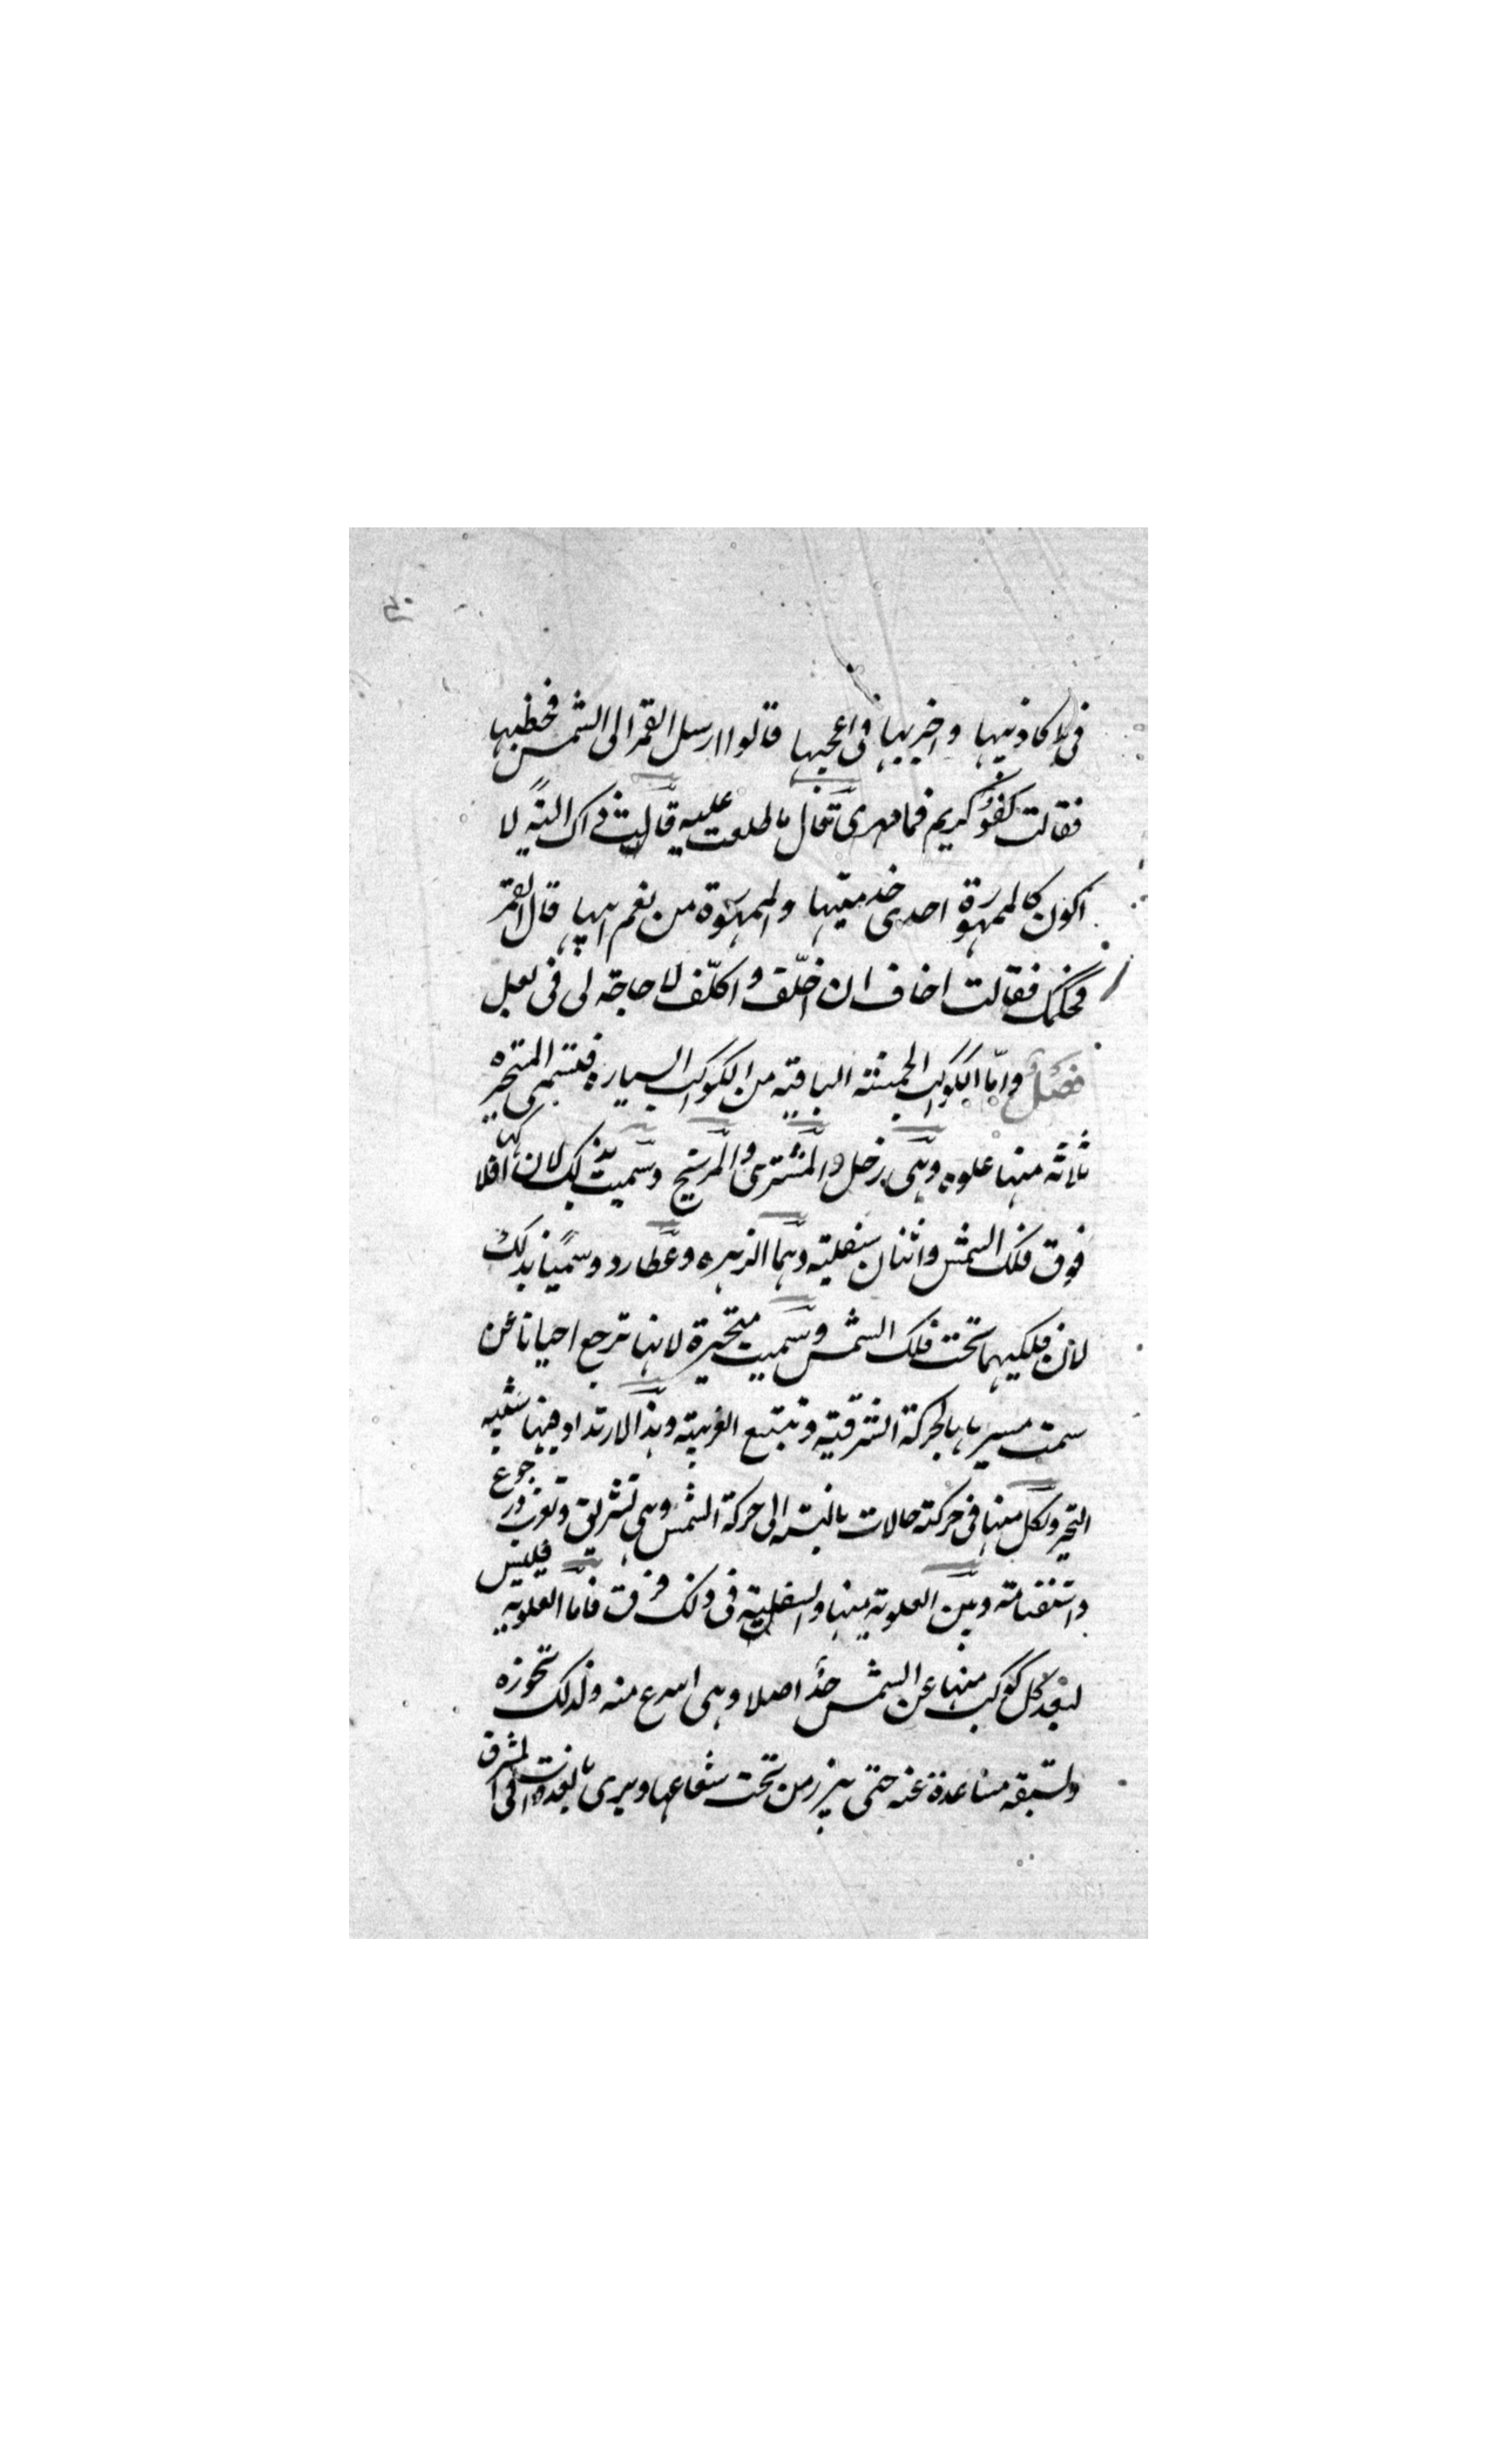 فى اكاذيبها و اخرىها فى اعجبها قالوا ارسل القمر الى الشمس فخطبها
فقالت كفؤ كريم فما مهرى قال ما طلعت عليه قالت ذاك البتة لا
اكون كالممهورة احدى خدمتيها والممهورة من نعم ابيها قال القمر
فحكمك فقالت اخاف ان اخلّف و اكلّف لا حاجة لى فى بعل
فصل وامّا الكواكب الخمسة الباقية من الكواكب السيارة فتسمى المتحيره
ثلاثة منها علوه وهى زحل والمشترى والمريخ وسميت بذلك لان افلاكها
فوق فلك الشمس واثنان سفلية وهما الزهره وعطارد وسميا بذلك
لان فلكيهما تحت فلك الشمس وسميت متحيرة لانها ترجع احيانا عن
سمت مسيرها بالحركة الشرقية وتتبع الغربية وهذا الارتداد فيها شبه
التحير ولكل منها فى حركته حالات بالنسبة الى حركة الشمس وهى تشريق وتغريب ورجوع
واستقامة وبين العلوية منها والسفلية فى ذلك فرق فاما العلوية فليس
لبعد كل كوكب منها عن الشمس حد اصلا وهى اسرع منه ولذلك تحوزه
وتسبقه متباعدة عنه حتى يبرز من تحت شعاعها ويرى بالغدوات فى المشرق